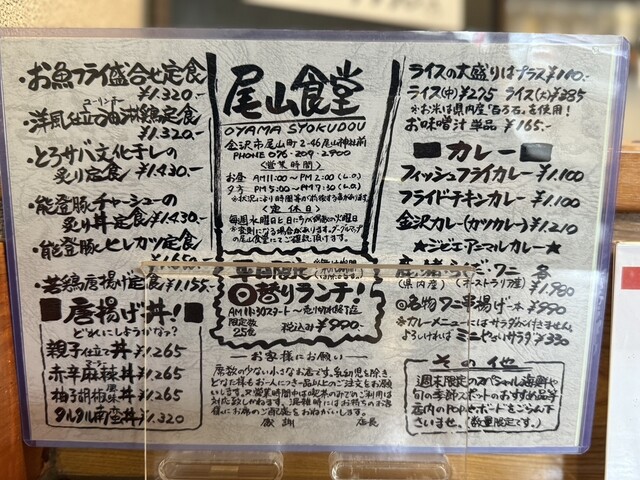 ・お魚フライ盛合せ定食
¥1.320.-
ユーリンチー
・洋風仕立油淋鶏定食
¥1.320.-
・とろサバ文化干しの
炙り定食 ¥1.430.-
・能登豚チャーシューの
炙り丼定食 ¥1.430.-
・能登豚ヒレカツ定食
¥1.650.-
・若鶏唐揚げ定食 ¥1.155.-
■唐揚げ丼!
どれにしようかな?
親子仕立て丼 ¥1.265
赤辛麻辣丼 ¥1.265
柚子胡椒風味丼 ¥1.265
タルタル南蛮丼 ¥1.320
尾山食堂
OYAMA SYOKUDOU
金沢市尾山町2-46尾山神社前
PHONE 076-209-2900
<営業時間>
お昼 AM11:00~PM2:00(L.O)
夕方 PM5:00~PM7:30(L.O)
<定休日>
毎週水曜日と
日替りランチ!
AM11:30スタート~売り切れ終了迄
限定数25食 税込み¥990.-
―お客様にお願い―
席数の少ない小さなお店です。乳幼児を除き、
どなた様もお一人につき一品以上のご注文をお願い
します。又営業時間中は喫茶のみでのご利用は
対応致しかねます。混雑時にはお待ちのお客
様にお席のご配慮をおねがいします。
感謝 店長
ライスの大盛りはプラス¥110.-
ライス(中)¥275 ライス(大)¥385
※お米は県内産「百万石」を使用!
お味噌汁単品 ¥165.-
■カレー■
フィッシュフライカレー ¥1.100
フライドチキンカレー ¥1.100
金沢カレー(カツカレー) ¥1.210
★ジビエアニマルカレー★
(県内産) (オーストラリア産) ¥1.980
◎名物ワニ串揚げ一本 ¥990
※カレーメニューにはサラダが付きません。
よろしければミニサラダ¥330
その他
週末限定のスペシャル海鮮や
旬の季節スポットのおすすめ品等
店内のPOPとボードをごらん下
さいませ。(数量限定です。)